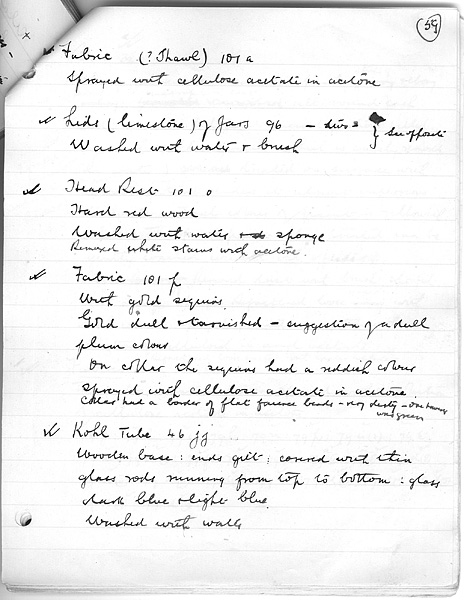 59
Fabric (? Shawl) 101 a
Sprayed with cellulose acetate in acetone
Lids (limestone) of Jars 96 - } See opposite
Washed with water + brush
Head Rest 101 o
Hard red wood
Washed with water sponge
Removed white stains with acetone.
Fabric 101 p
With gold sequins.
Gold dull + tarnished - suggestion of a dull
plum colour
On collar the sequins had a reddish colour
Sprayed with cellulose acetate in acetone
Collar had a border of flat faience beads - very dusty - one
was green
Kohl Tube 46 jj
Wooden base: ends gilt: covered with thin
glass rods running from top to bottom: glass
dark blue + light blue.
Washed with water